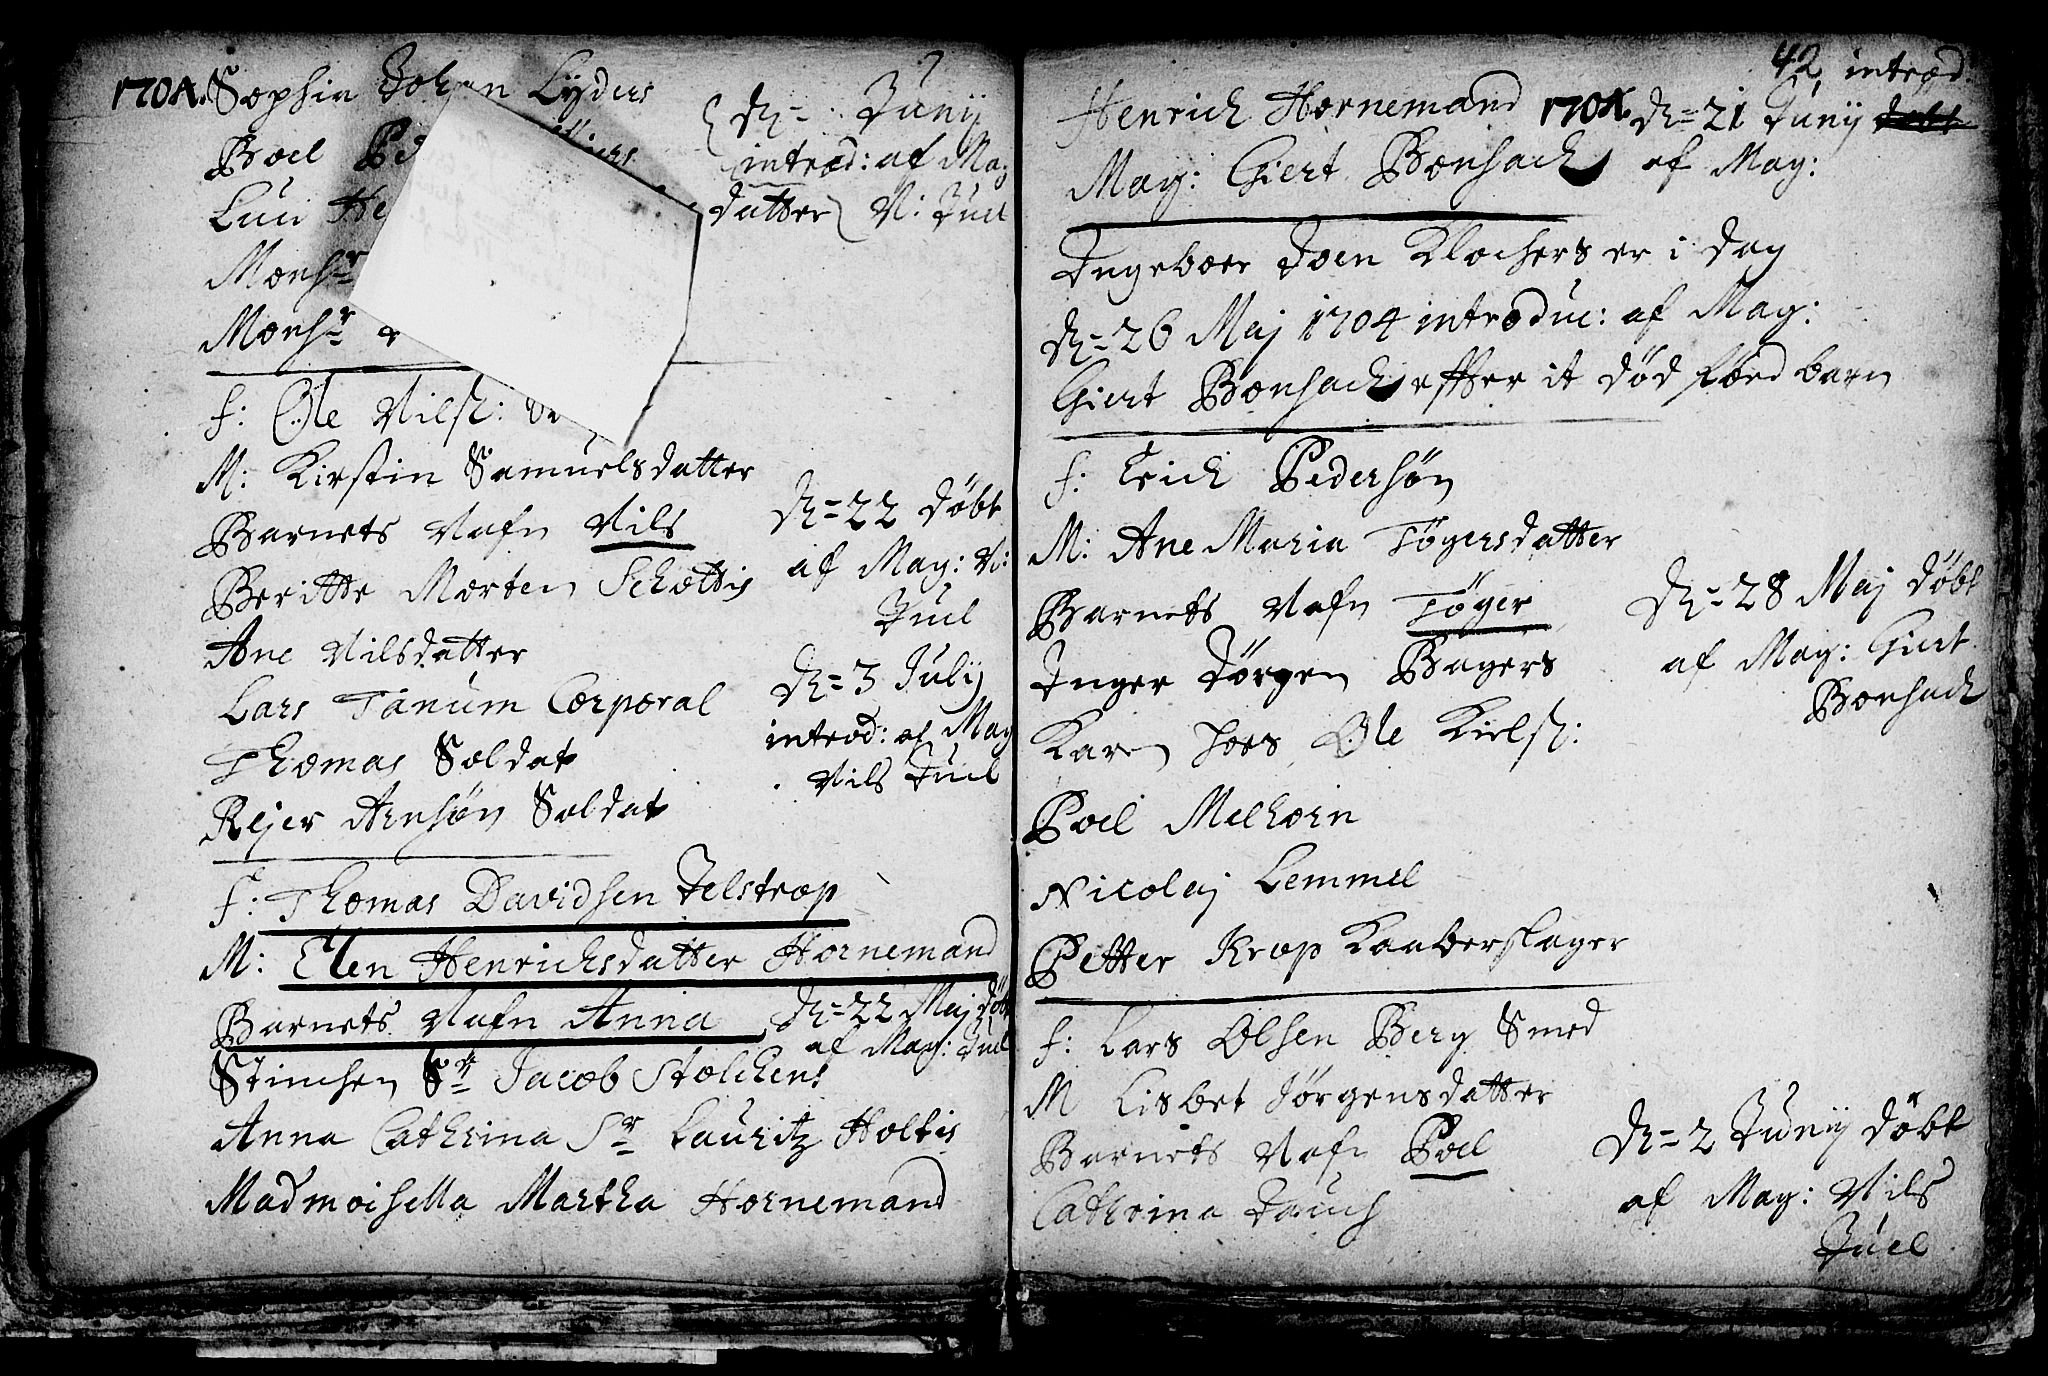 1704. Sophia Johan Lyders
Boel
Lucii
Monsr
Monsr
d= Junij
introd: af Mag
datter N: Juel
f: Ole Nilss:
M: Kirstin Samuelsdatter
Barnets Nafn Nils
Beritte Morten Schottis
Ane Nilsdatter
Lars Tanum Corporal
Thomas Soldat
Rejer Arnsøn Soldat
d= 22 døbt
af Mag: N:
Juel
d= 3 July
introd: af Mag
Nils Juel
f: Thomas Davidsen Jelstrop
M: Elen Henrichsdatter Hornemand
Barnets Nafn Anna
d= 22 Maj døbt
af Mag: Juel
Stinchen Sr Jacob Stolchens
Anna Cathrina Sr Lauritz Holtis
Madmoisella Martha Hornemand
42
Henrich Hornemand
Mag: Giert Bonsach
1704. d= 21 Junij introd:
af Mag:
Ingeboer Joen Klochers er i dag
d= 26 Maj 1704 introduc: af Mag:
Giert Bonsach effter it død fød barn
f: Erich Pedersøn
M: Ane Maria Tøgersdatter
Barnets Nafn Tøger
Inger Jørgen Bagers
Karen Ole Kielss:
Poel Melhorn
Nicolaj Lemmel
Petter Krop Kaaberslager
d= 28 Maj døbt
af Mag: Giert
Bonsach
f: Lars Olsen Berg Smed
M Lisbet Jørgensdatter
Barnets Nafn Poel
Cathrina Jauch
d= 2 Junij døbt
af Mag: Nils
Juel